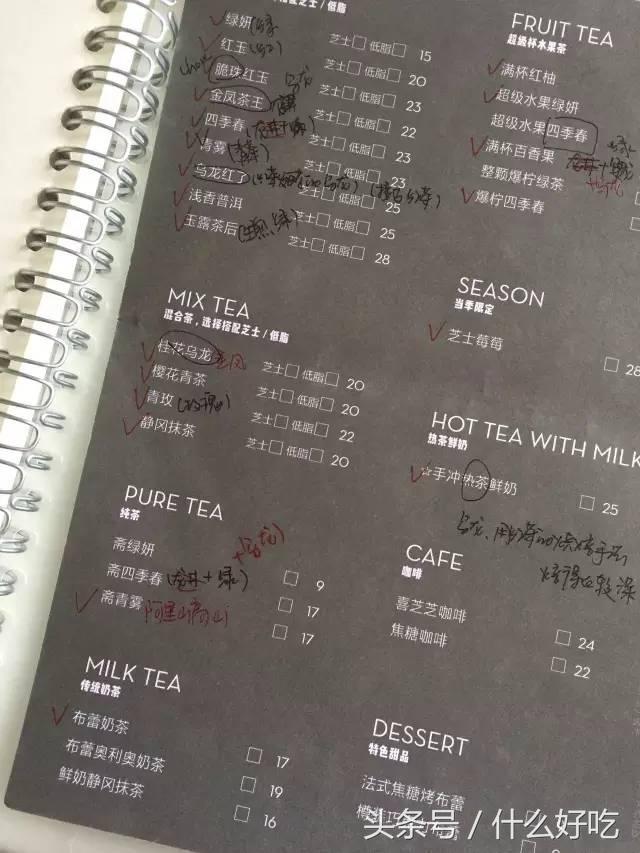 搭配芝士/低脂
绿妍(绿)
芝士□ 低脂□ 15
红玉
芝士□ 低脂□ 20
脆珠红玉
芝士□ 低脂□ 23
金凤茶王
芝士□ 低脂□ 23
四季春
芝士□ 低脂□ 22
青雾
芝士□ 低脂□ 23
乌龙红了
芝士□ 低脂□ 25
浅香普洱
芝士□ 低脂□ 25
玉露茶后
芝士□ 低脂□ 28
MIX TEA
混合茶，选择搭配芝士/低脂
桂花乌龙
芝士□ 低脂□ 20
樱花青茶
芝士□ 低脂□ 20
青玫(玫瑰)
芝士□ 低脂□ 22
静冈抹茶
芝士□ 低脂□ 20
PURE TEA
纯茶
+乌龙)
斋绿妍
□ 9
斋四季春(龙井+绿)
□ 17
斋青雾 阿里山高山
□ 17
MILK TEA
传统奶茶
布蕾奶茶
□ 17
布蕾奥利奥奶茶
□ 19
鲜奶静冈抹茶
□ 16
FRUIT TEA
超级杯水果茶
满杯红柚
超级水果绿妍
超级水果四季春
满杯百香果
整颗爆柠绿茶
爆柠四季春
SEASON
当季限定
芝士莓莓
□ 28
HOT TEA WITH MILK
热茶鲜奶
☆手冲热茶鲜奶
□ 25
CAFE
咖啡
喜芝芝咖啡
□ 24
焦糖咖啡
□ 22
DESSERT
特色甜品
法式焦糖烤布蕾
头条号 / 什么好吃